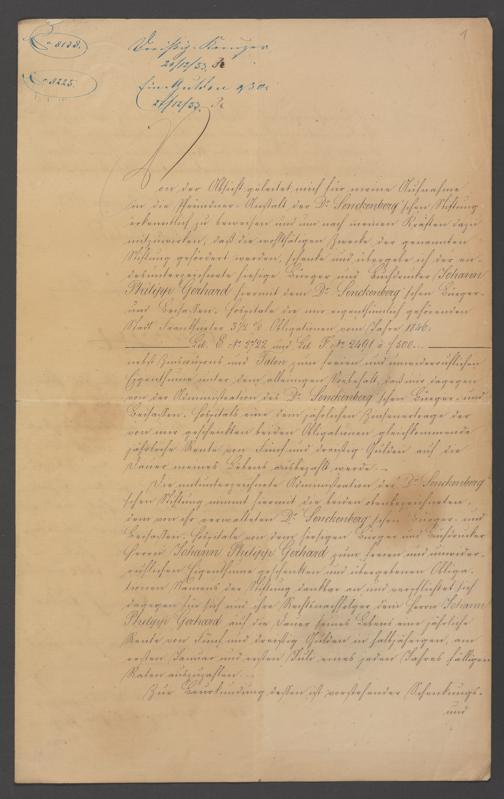 N. 8133.
Dreißig Kreuzer
20/12/53.
N. 8225.
Ein Gulden 30
21/12/53.
1
Von der Absicht geleitet mich für meine Aufnahme
in die Pfründner-Anstalt der Dr. Senckenberg'schen Stiftung
erkenntlich zu beweisen und um nach meinen Kräften dazu
mitzuwirken, daß die wohlthätigen Zwecke der genannten
Stiftung gefördert werden, schenke und übergebe ich der an-
desunterzeichnete hiesige Bürger und Buchdrucker Johann
Philipp Gerhard hiermit dem Dr. Senckenberg'schen Bürger-
und Beisassen-Hospitale die mir eigenthümlich gehörenden
Stadt Frankfurter 3½ % Obligationen vom Jahre 1846.
Lit. E No. und Lit. F. No. 2491 à f 500.
nebst Zinscoupons und Talon zum freien und unwiderruflichen
Eigenthume unter dem alleinigen Vorbehalt, daß mir dagegen
von der Administration des Dr. Senckenberg'schen Bürger- und
Beisassen-Hospitals eine dem jährlichen Zinsenertrage der
von mir geschenkten beiden Obligationen gleichkommende
jährliche Rente von fünf und dreißig Gulden auf die
Dauer meines Lebens ausbezahlt werde.
Die mitunterzeichnete Administration der Dr. Senckenberg
'schen Stiftung nimmt hiermit die beiden obenbezeichneten,
dem von ihr verwalteten Dr. Senckenberg'schen Bürger- und
Beisassen-Hospitale von dem hiesigen Bürger und Buchdrucker
Herrn Johann Philipp Gerhard zum freien und unwider-
ruflichen Eigenthume geschenkten und übergebenen Obliga-
tionen Namens der Stiftung dankbar an und verpflichtet sich
dagegen für sich und ihre Rechtsnachfolger dem Herrn Johann
Philipp Gerhard auf die Dauer seines Lebens eine jährliche
Rente von fünf und dreißig Gulden in halbjährigen, am
ersten Januar und ersten Juli eines jeden Jahres fälligen
Raten auszuzahlen.
Zur Beurkundung dessen ist vorstehender Schenkungs-
und